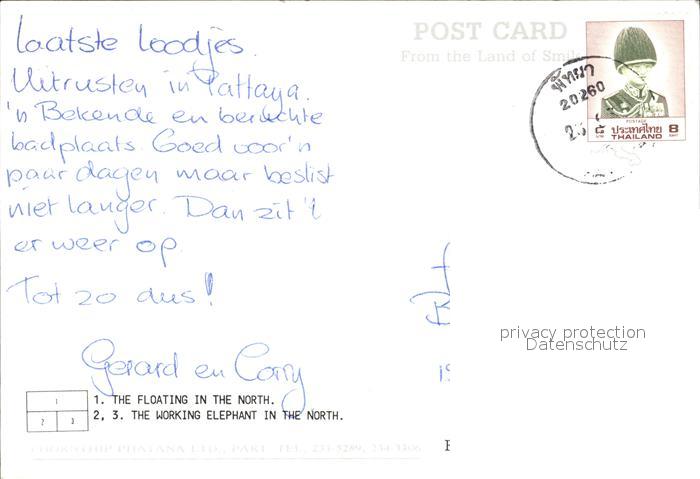 POST CARD
From the Land of Smile
laatste loodjes.
Uitrusten in Pattaya.
'n Bekende en beruchte
badplaats. Goed voor'n
paar dagen maar beslist
niet langer. Dan zit 't
er weer op.
Tot zo dus!
Gerard en Corry
พัทยา
20260
POSTAGE
๘ บาท ประเทศไทย 8 BAHT
THAILAND
privacy protection
Datenschutz
1
2 3
1. THE FLOATING IN THE NORTH.
2, 3. THE WORKING ELEPHANT IN THE NORTH.
PHORNTHIP PHATANA LTD., PART. TEL. 233-5289, 234-3306